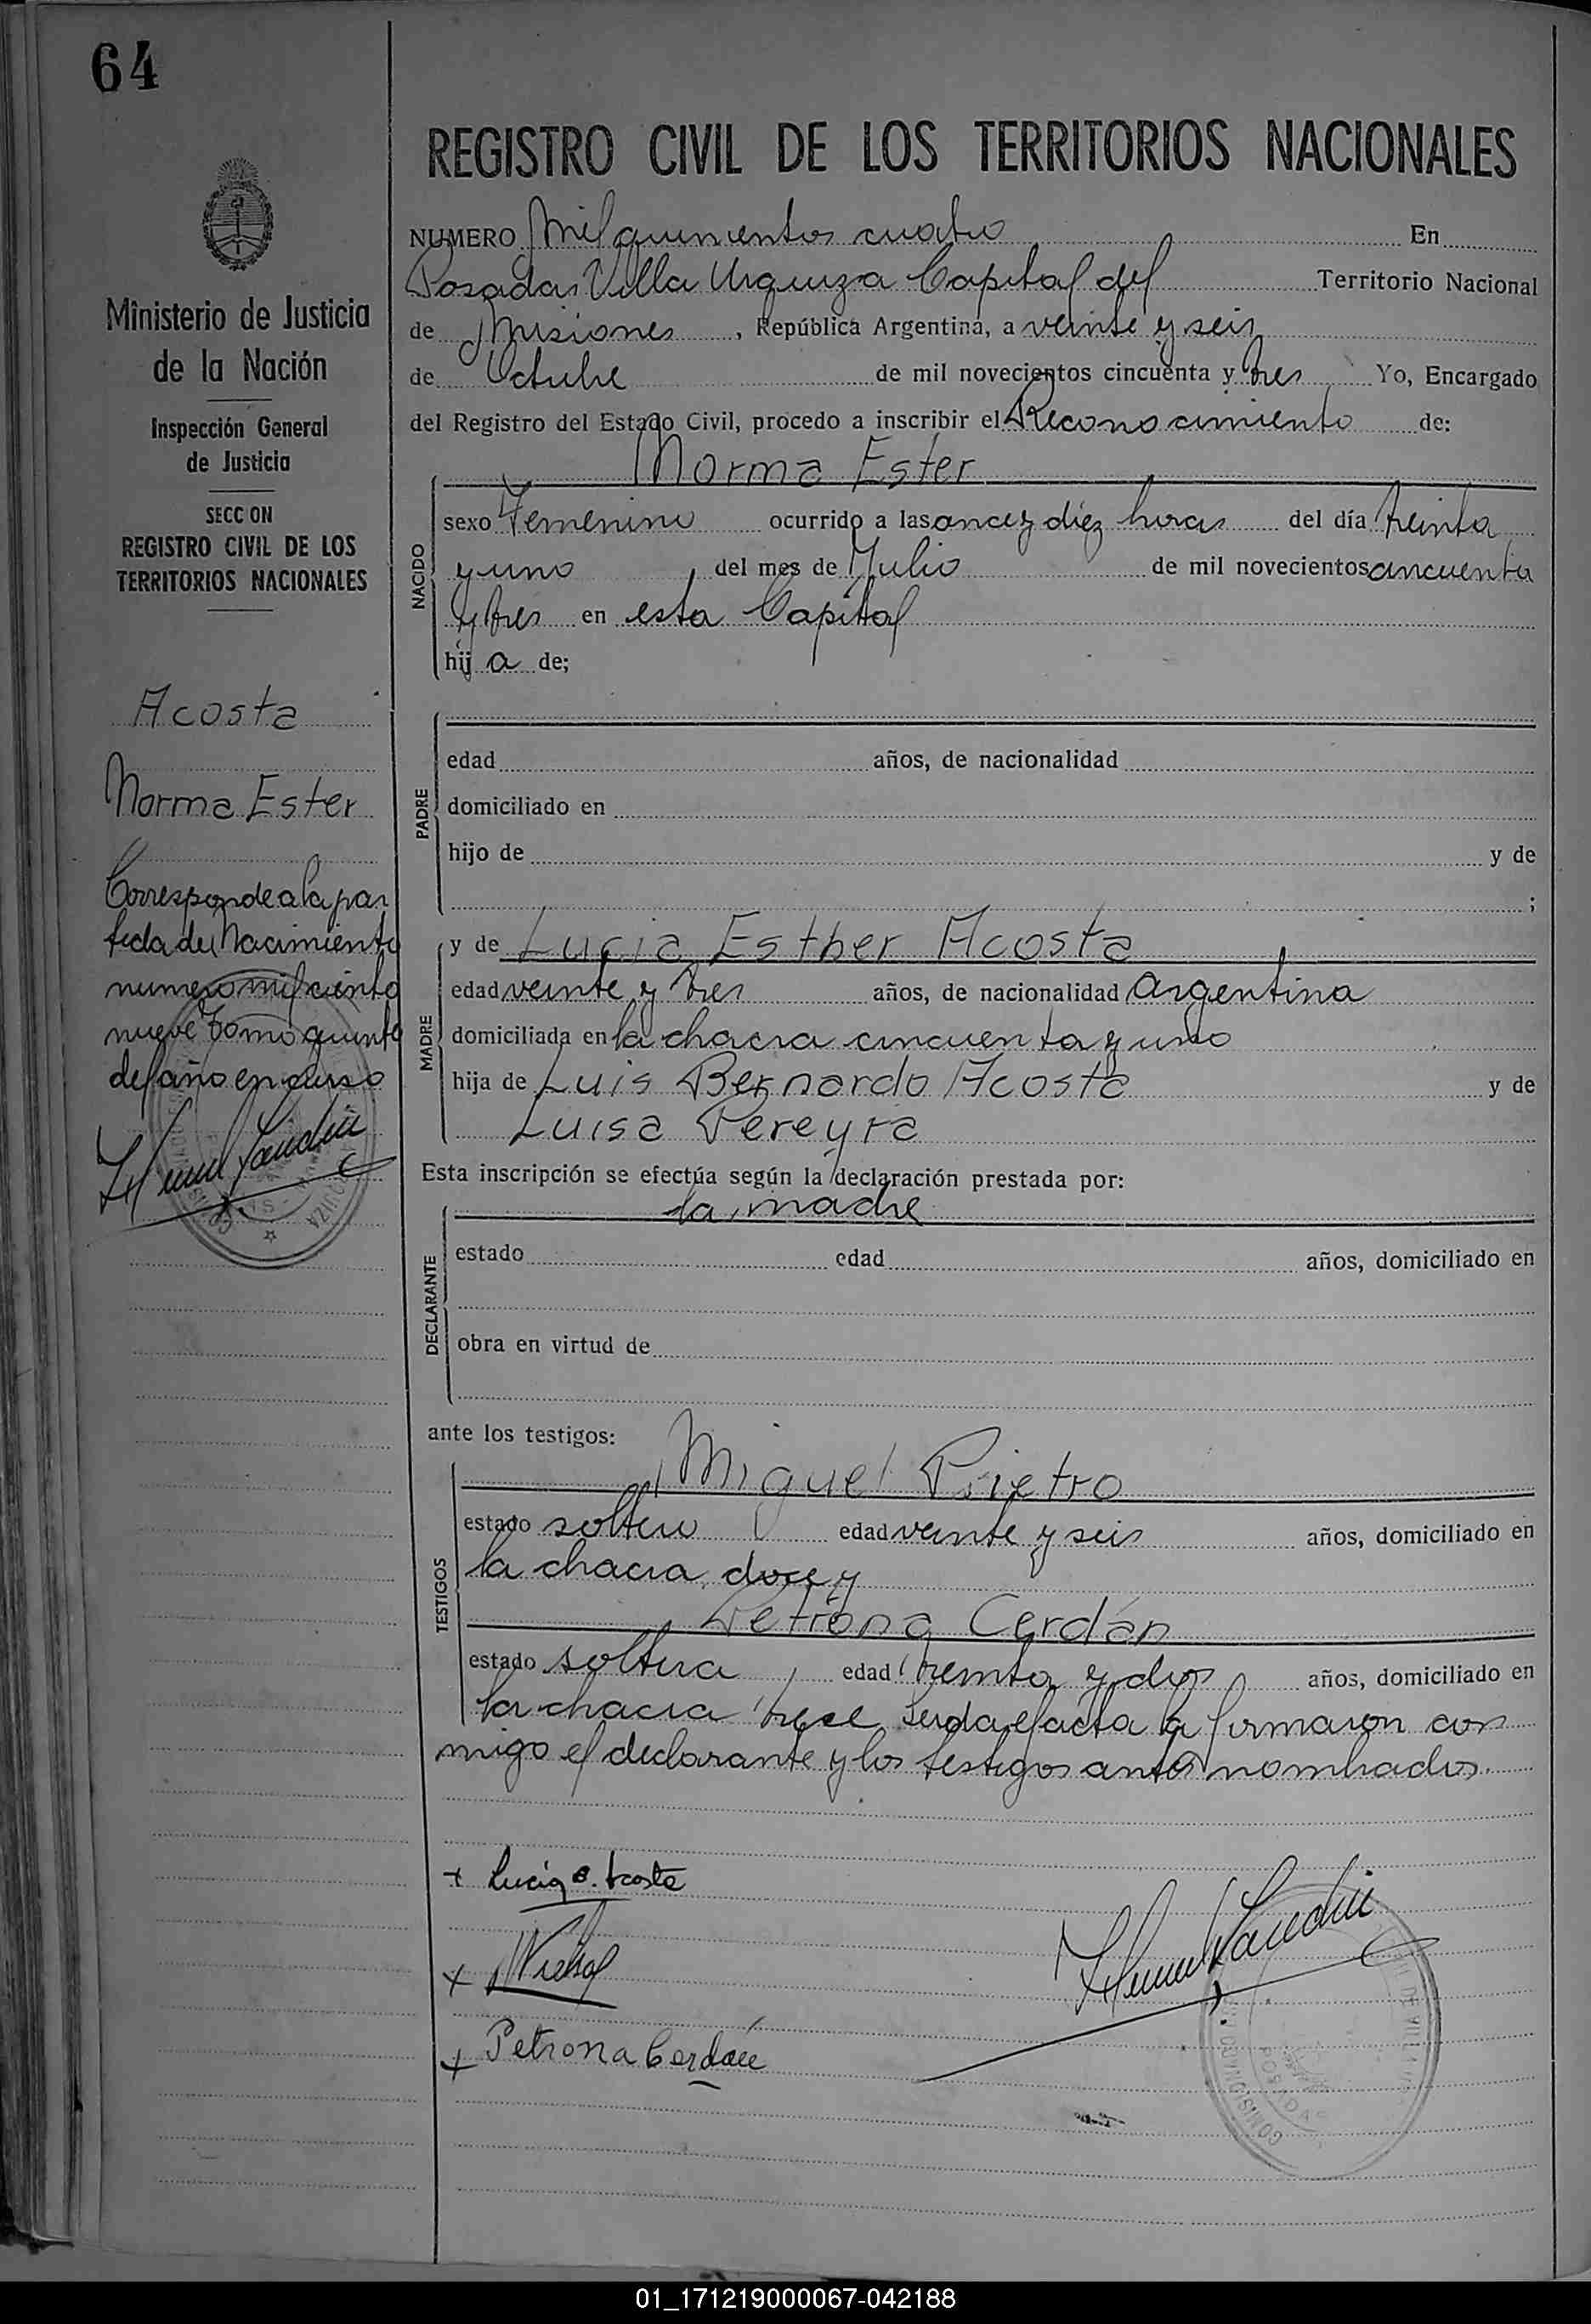 64
REGISTRO CIVIL DE LOS TERRITORIOS NACIONALES
Ministerio de Justicia
de la Nación
Inspección General
de Justicia
SECC ON
REGISTRO CIVIL DE LOS
TERRITORIOS NACIONALES
Acosta
Norma Ester
Corresponde a la par
tida de Nacimiento
numero mil ciento
nueve Tomo quinto
del año en curso
NUMERO Mil quinientos cuatro En
Posadas Villa Urquiza Capital del Territorio Nacional
de Misiones, República Argentina, a veinte y seis
de Octubre de mil novecientos cincuenta y tres Yo, Encargado
del Registro del Estado Civil, procedo a inscribir el Reconocimiento de:
Norma Ester
NACIDO
sexo Femenino ocurrido a las once y diez horas del día treinta
y uno del mes de Julio de mil novecientos cincuenta
y tres en esta Capital
hij a de;
PADRE
edad años, de nacionalidad
domiciliado en
hijo de y de
;
MADRE
y de Lucia Esther Acosta
edad veinte y tres años, de nacionalidad Argentina
domiciliada en la chacra cincuenta y uno
hija de Luis Bernardo Acosta y de
Luisa Pereyra
Esta inscripción se efectúa según la declaración prestada por:
la madre
DECLARANTE
estado edad años, domiciliado en
obra en virtud de
ante los testigos:
Miguel Prietro
TESTIGOS
estado soltero edad veinte y seis años, domiciliado en
la chacra doce y
Petrona Cerdán
estado soltera, edad treinta y dos años, domiciliado en
la chacra trece Leida el acta la firmaron con
migo el declarante y los testigos antes nombrados.
+ Lucia E. Acosta
+
+ Petrona Cerdán
POSADAS
01_171219000067-042188